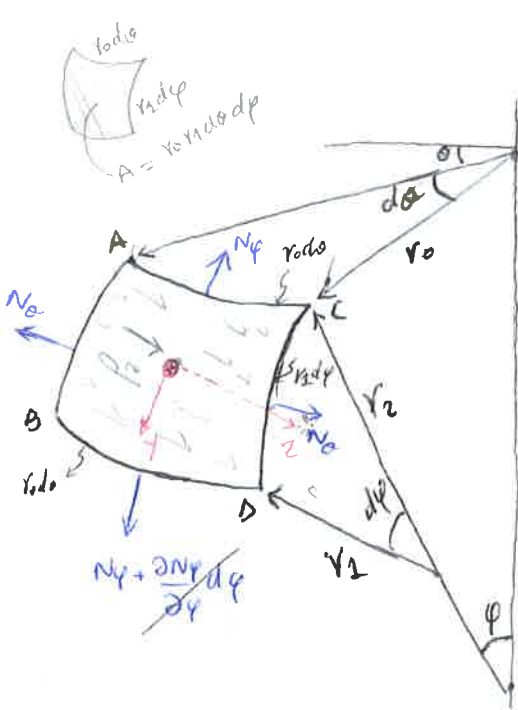 r₀dθ
r₁dφ
A = r₀r₁dθdφ
θ
dθ
A
Nφ
r₀dθ
r₀
Nθ
C
Pz
r₁dφ
r₂
B
Y
Z
Nθ
r₀dθ
D
dφ
r₁
Nφ + ∂Nφ/∂φ dφ
φ